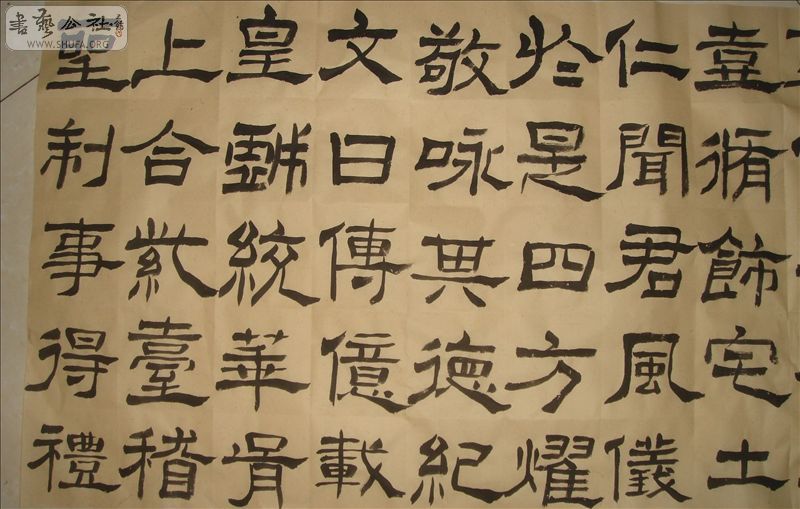 壹循飾宅土
仁聞君風儀
於是四方燿
敬咏其德紀
文曰傳億載
皇戲統華胥
上合紫臺稽
聖制事得禮
書藝公社
WWW.SHUFA.ORG